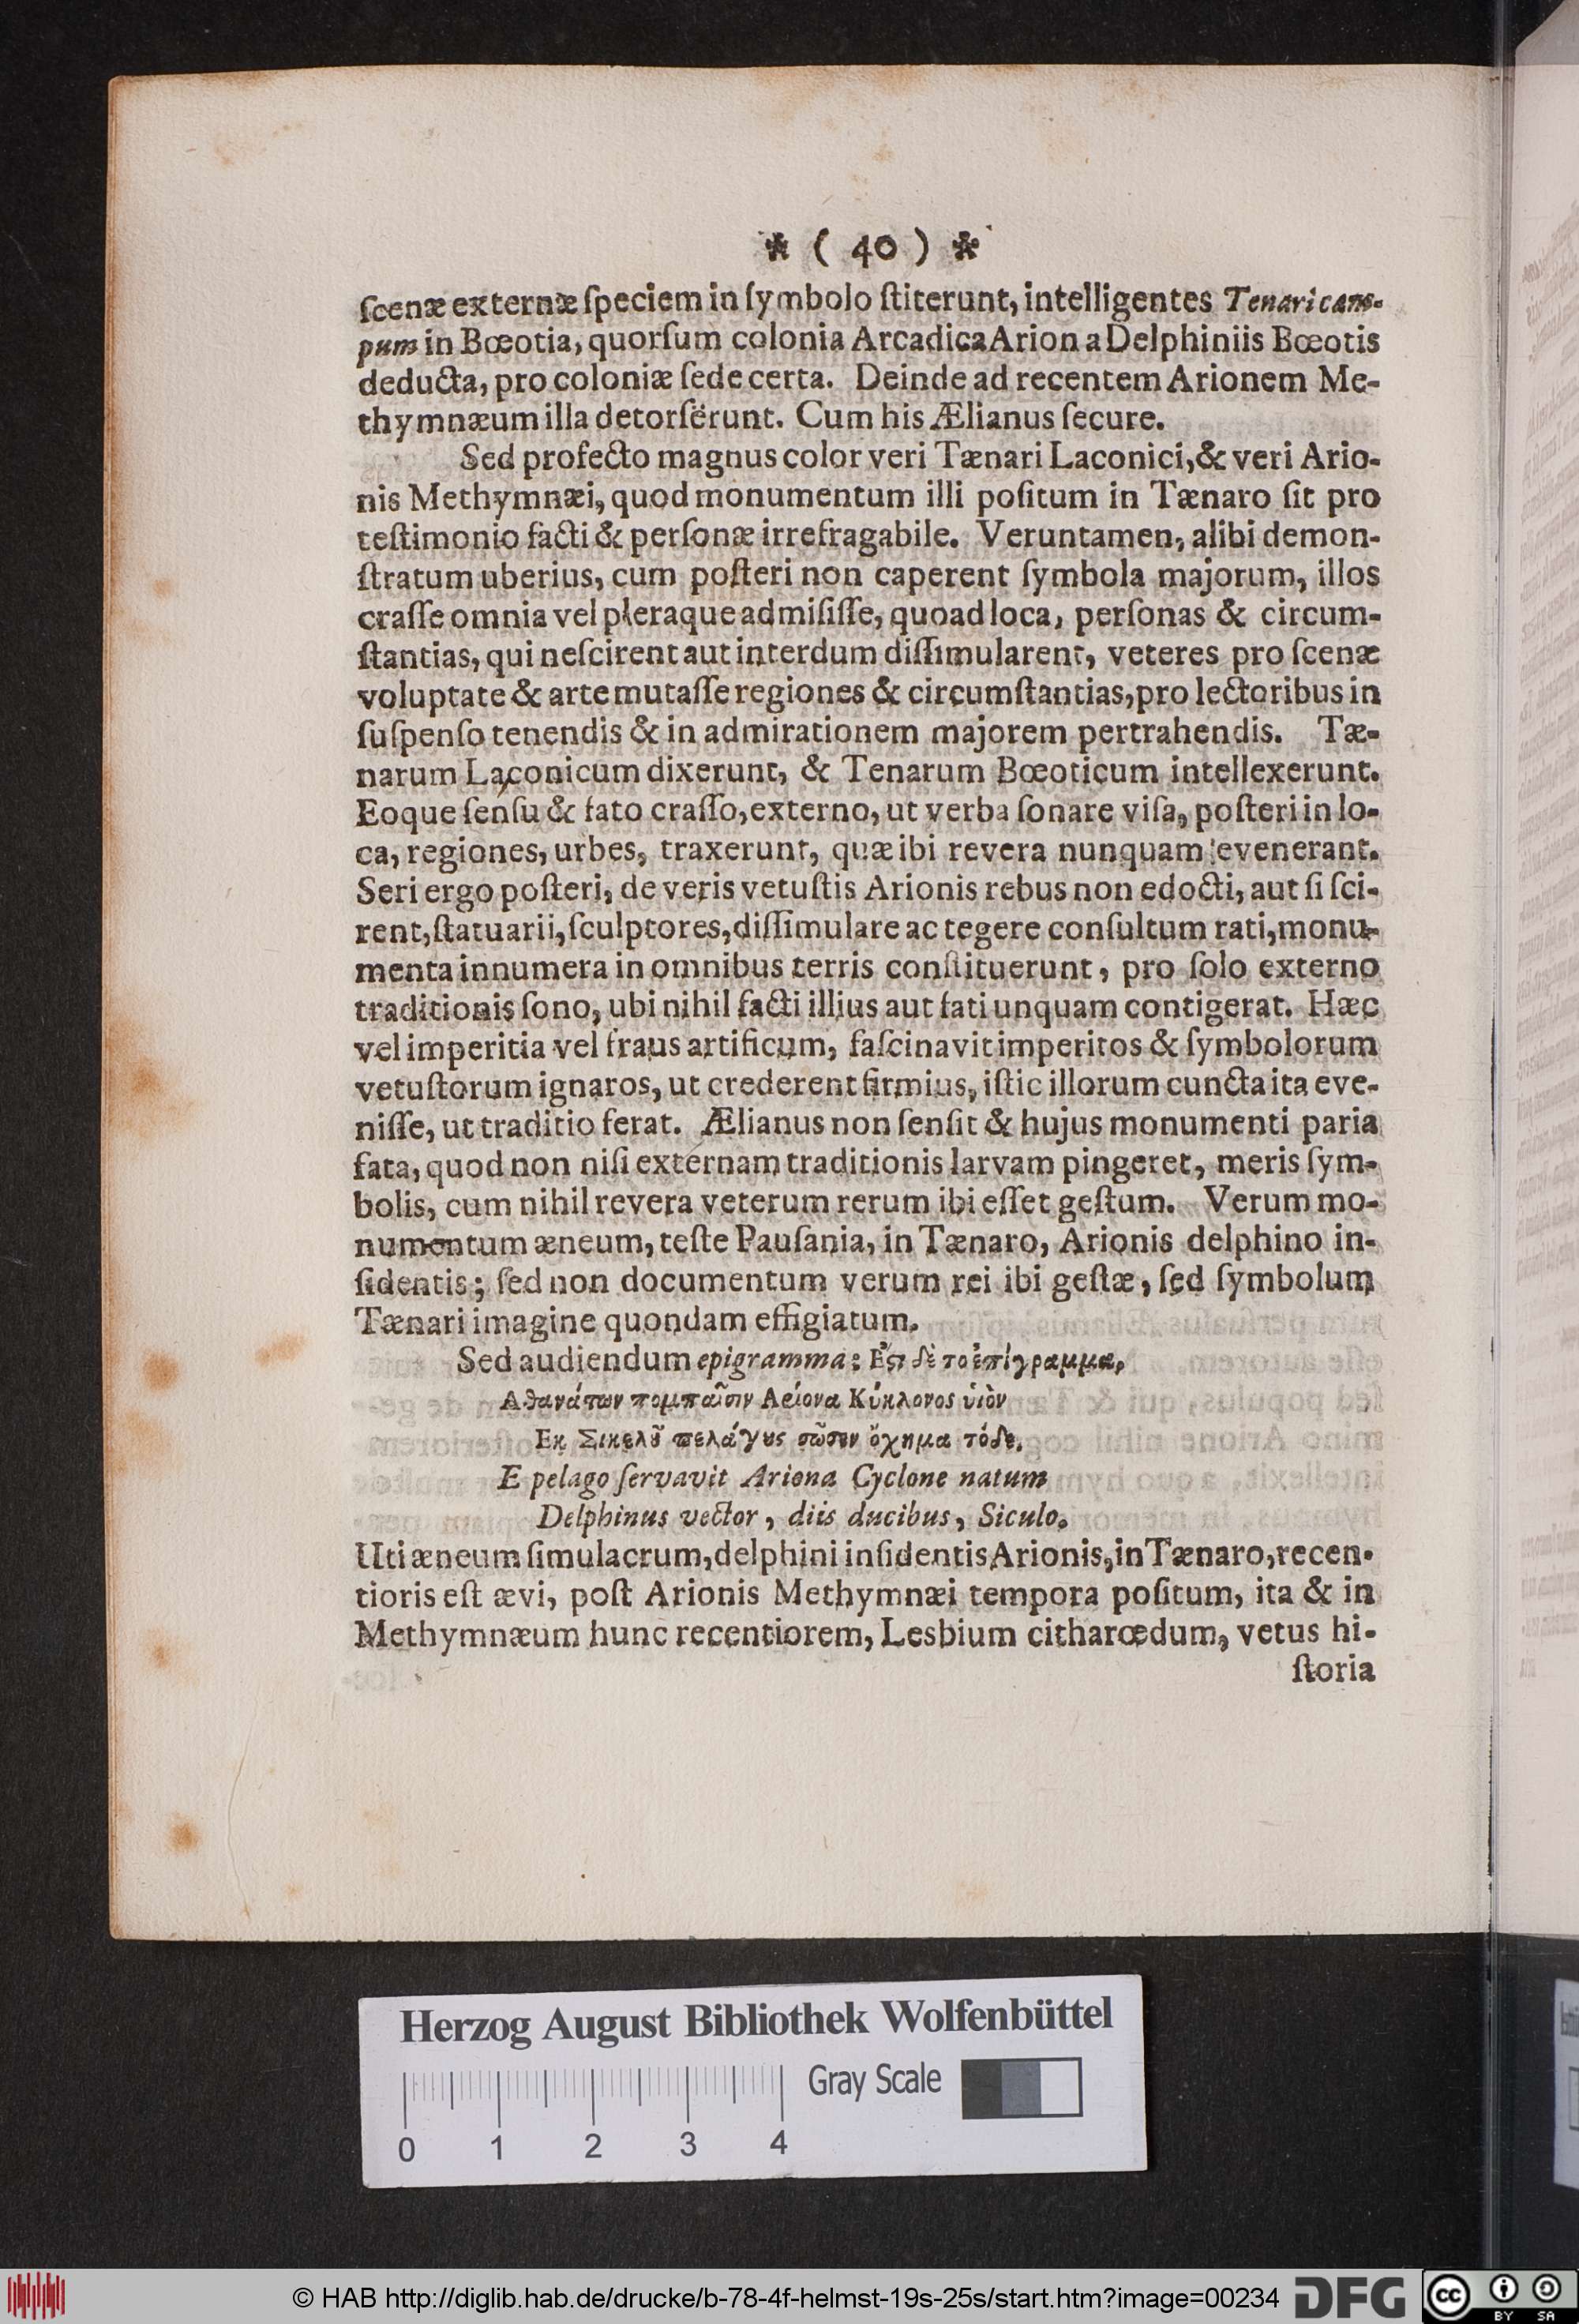 * ( 40 ) *
ſcenæ externæ ſpeciem in ſymbolo ſtiterunt, intelligentes Tenari cam-
pum in Bœotia, quorſum colonia Arcadica Arion a Delphiniis Bœotis
deducta, pro coloniæ ſede certa. Deinde ad recentem Arionem Me-
thymnæum illa detorſërunt. Cum his Ælianus ſecure.
Sed profecto magnus color veri Tænari Laconici, & veri Ario-
nis Methymnæi, quod monumentum illi poſitum in Tænaro ſit pro
teſtimonio facti & perſonæ irrefragabile. Veruntamen, alibi demon-
ſtratum uberius, cum poſteri non caperent ſymbola majorum, illos
craſſe omnia vel pleraque admiſiſſe, quoad loca, perſonas & circum-
ſtantias, qui neſcirent aut interdum diſſimularent, veteres pro ſcenæ
voluptate & arte mutaſſe regiones & circumſtantias, pro lectoribus in
ſuſpenſo tenendis & in admirationem majorem pertrahendis. Tæ-
narum Laconicum dixerunt, & Tenarum Bœoticum intellexerunt.
Eoque ſenſu & fato craſſo, externo, ut verba ſonare viſa, poſteri in lo-
ca, regiones, urbes, traxerunt, quæ ibi revera nunquam evenerant.
Seri ergo poſteri, de veris vetuſtis Arionis rebus non edocti, aut ſi ſci-
rent, ſtatuarii, ſculptores, diſſimulare ac tegere conſultum rati, monu-
menta innumera in omnibus terris conſtituerunt, pro ſolo externo
traditionis ſono, ubi nihil facti illius aut fati unquam contigerat. Hæc
vel imperitia vel fraus artificum, faſcinavit imperitos & ſymbolorum
vetuſtorum ignaros, ut crederent firmius, iſtic illorum cuncta ita eve-
niſſe, ut traditio ferat. Ælianus non ſenſit & hujus monumenti paria
fata, quod non niſi externam traditionis larvam pingeret, meris ſym-
bolis, cum nihil revera veterum rerum ibi eſſet geſtum. Verum mo-
numentum æneum, teſte Pauſania, in Tænaro, Arionis delphino in-
ſidentis; ſed non documentum verum rei ibi geſtæ, ſed ſymbolum
Tænari imagine quondam effigiatum.
Sed audiendum epigramma: Ἔϛι δὲ το ἐπίγραμμα,
Αθανάτων πομπαῖσιν Αείονα Κύκλονος ὑιὸν
Εκ Σικελȣ͂ πελάγȣς σῶσεν ὄχημα τόδε.
E pelago ſervavit Ariona Cyclone natum
Delphinus vector, diis ducibus, Siculo.
Uti æneum ſimulacrum, delphini inſidentis Arionis, in Tænaro, recen-
tioris eſt ævi, poſt Arionis Methymnæi tempora poſitum, ita & in
Methymnæum hunc recentiorem, Lesbium citharœdum, vetus hi-
ſtoria
Herzog August Bibliothek Wolfenbüttel
Gray Scale
0 1 2 3 4
© HAB http://diglib.hab.de/drucke/b-78-4f-helmst-19s-25s/start.htm?image=00234
DFG
cc BY SA